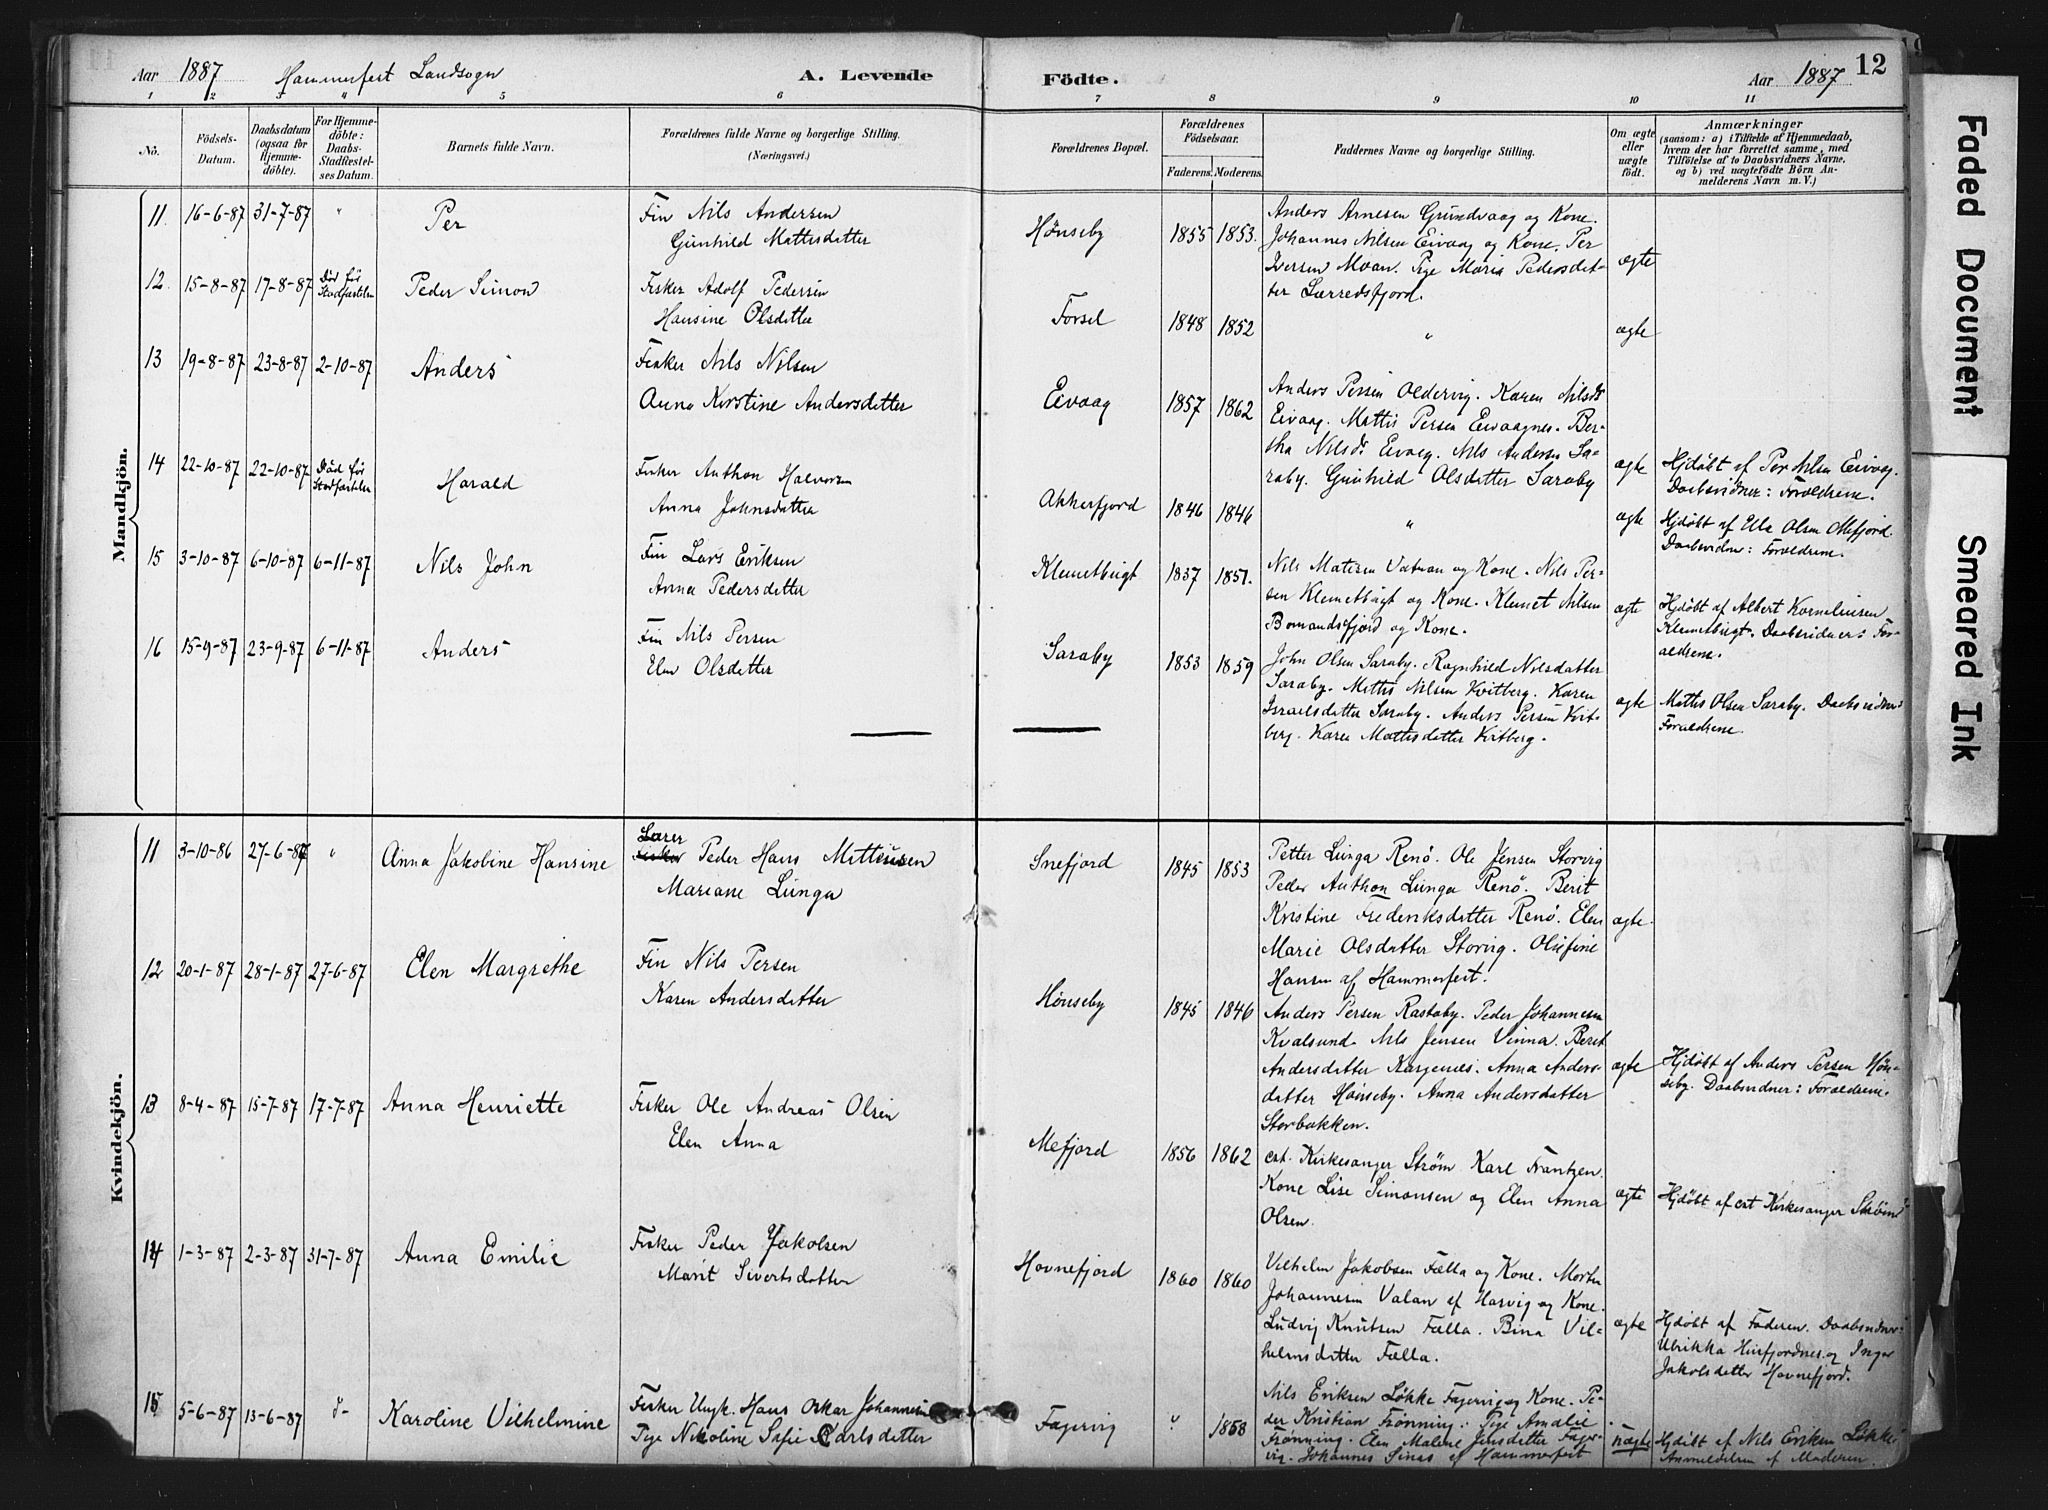 Aar 1887 Hammerfest Landsogn A. Levende Födte. Aar 1887 12
1 2 3 4 5 6 7 8 9 10 11
No.
Födsels-
Datum.
Daabsdatum
(ogsaa for
Hjemme-
döbte).
For Hjemme-
döbte:
Daabs-
Stadfæstel-
ses Datum.
Barnets fulde Navn.
Forældrenes fulde Navne og borgerlige Stilling.
(Næringsvei.)
Forældrenes Bopæl.
Forældrenes
Födselsaar.
Faderens. Moderens.
Faddernes Navne og borgerlige Stilling.
Om ægte
eller
uægte
födt.
Anmærkninger
(saasom: a) i Tilfælde af Hjemmedaab,
hvem der har forrettet samme, med
Tilföielse af to Daabsvidners Navne,
og b) ved uægtefödte Börn An-
melderens Navn m. V.)
Mandkjön.
11 16-6-87 31-7-87 " Per
Fin Nils Andersen
Gunhild Mattisdatter
Hønseby 1855 1853.
Anders Arnesen Grundvaag og Kone.
Johannes Nilsen Eivaag og Kone. Per
Iversen Moan. Pige Maria Pedersdat-
ter Lærredsfjord.
ægte
12 15-8-87 17-8-87
Död för
Stadfæstelse
Peder Simon
Fisker Adolf Pedersen
Hansine Olsdatter
Forsøl 1848 1852 " ægte
13 19-8-87 23-8-87 2-10-87 Anders
Fisker Nils Nilsen
Anna Kirstine Andersdatter
Eivaag 1857 1862
Anders Persen Oldervig. Karen Nilsdr
Eivaag. Mattis Persen Eivaagnes. Ber-
tha Nilsdr Eivaag. Nils Andersen Sa-
raby. Gunhild Olsdatter Saraby
ægte
Hjdöbt af Per Nilsen Eivaag.
Daabsvidner: Forældrene.
14 22-10-87 22-10-87
Död för
Stadfæstelse
Harald
Fisker Anthon Halvorsen
Anna Johnsdatter
Akkerfjord 1846 1846 " ægte
Hjdöbt af Elle Olsen Mefjord.
Daabsvidner: Forældrene.
15 3-10-87 6-10-87 6-11-87 Nils John
Fin Lars Eriksen
Anna Pedersdatter
Klemetbugt 1837 1851.
Nils Matisen Vatnan og Kone. Nils Per-
sen Klemetbugt og Kone. Klemet Nilsen
Bomandsfjord og Kone.
ægte
Hjdöbt af Albert Korneliusen
Klemetbugt. Daabsvidner: For-
ældrene.
16 15-9-87 23-9-87 6-11-87 Anders
Fin Nils Persen
Elen Olsdatter
Saraby 1853 1859
John Olsen Saraby. Ragnhild Nilsdatter
Saraby. Mattis Nilsen Kvitberg. Karen
Israelsdatter Saraby. Anders Persen Kvit-
berg. Karen Mattisdatter Kvitberg.
ægte
Mattis Olsen Saraby. Daabsvidner:
Forældrene.
Kvindekjön.
11 3-10-86 27-6-87 " Anna Jakobine Hansine
Lærer
Fisker Peder Hans Mitteusen
Mariane Lunga
Snefjord 1845 1853
Petter Lunga Renö. Ole Jensen Storvig
Peder Anthon Lunga Renö. Berit
Kristine Frederiksdatter Renö. Elen
Marie Olsdatter Storvig. Olufine
Hansen af Hammerfest.
ægte.
12 20-1-87 28-1-87 27-6-87 Elen Margrethe
Fin Nils Persen
Karen Andersdatter
Hønseby 1845 1846
Anders Persen Rastaby. Peder Johannesen
Kvalsund. Nils Jensen Vinna. Beret
Andersdatter Kargenes. Anna Anders-
datter Hønseby. Anna Andersdatter
Storbakken.
ægte
Hjdöbt af Anders Persen Høn-
seby. Daabsvidner: Forældrene.
13 8-4-87 15-7-87 17-7-87 Anna Henriette
Fisker Ole Andreas Olsen
Elen Anna
Mefjord 1856 1862
cst. Kirkesanger Strøm. Karl Frantzen.
Kone Lise Simonsen og Elen Anna
Olsen.
ægte
Hjdöbt af cst Kirkesanger Strøm
14 1-3-87 2-3-87 31-7-87 Anna Emilie
Fisker Peder Jakobsen
Marit Sivertsdatter
Havnefjord 1860 1860
Vilhelm Jakobsen Fælla og Kone. Morten
Johannesen Valan af Harvig og Kone.
Ludvig Knutsen Fælla. Bina Vil-
helmsdatter Fælla.
ægte
Hjdöbt af Faderen. Daabsvidner:
Ulrikka Hinfjordnes og Inger
Jakobsdatter Havnefjord.
15 5-6-87 13-6-87 Karoline Vilhelmine
Fisker Ungk. Hans Oskar Johannesen
Pige Nikoline Sofie Carlsdatter
Fagervig " 1868
Nils Eriksen Løkke Fagervig og Kone. Pe-
der Kristian Frønning. Pige Amalie
Frønning. Elen Malene Jensdatter Fager-
vig. Johannes Sinas af Hammerfest
uægte
Hjdöbt af Nils Eriksen Løkke
Anmeldelsen af Moderen.
Faded Document
Smeared Ink